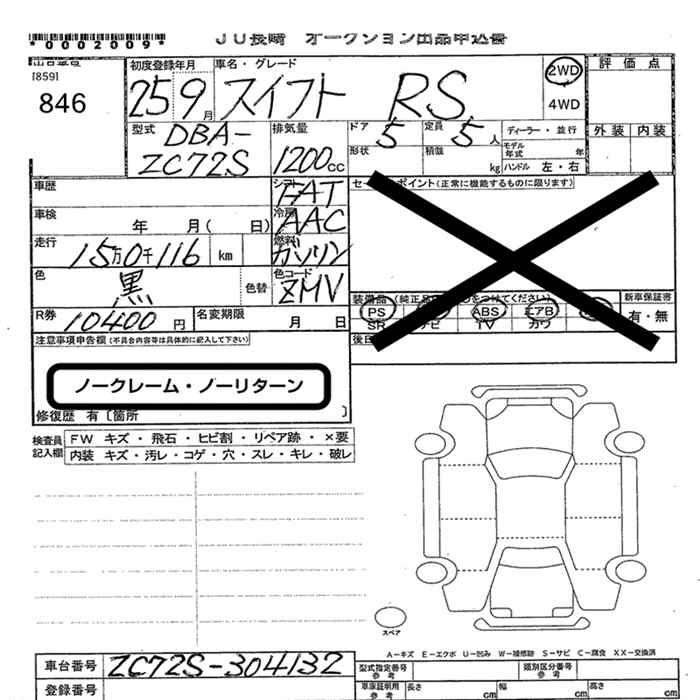 JU長崎 オークション出品申込書
*0002009*
[859]
846
初度登録年月
25年9月
車名・グレード
スイフト RS
2WD
4WD
評価点
外装 内装
型式
DBA-
ZC72S
排気量
1200cc
ドア
5
定員
5人
形状
積載
kg
ディーラー・並行
モデル年式 年
ハンドル 左・右
車歴
シフト
FAT
車検
年 月( 日)
冷房
AAC
走行
15万0千116 km
燃料
ガソリン
色
黒
色替
色コード
ZMV
R券
10400円
名変期限
月 日
(正常に機能するものに限ります)
装備品
PS
ABS
エアB
SR
TV
新車保証書
有・無
注意事項申告欄(不具合内容等は具体的に記入して下さい)
ノークレーム・ノーリターン
修復歴 有〔箇所 〕
検査員
記入欄
FW キズ・飛石・ヒビ割・リペア跡・×要
内装 キズ・汚レ・コゲ・穴・スレ・キレ・破レ
スペア
A-キズ E-エクボ U-凹み W-補修跡 S-サビ C-腐食 XX-交換済
車台番号
ZC72S-304132
登録番号
型式指定番号
参考
類別区分番号
参考
車庫証明用
参考
長さ cm
幅 cm
高さ cm